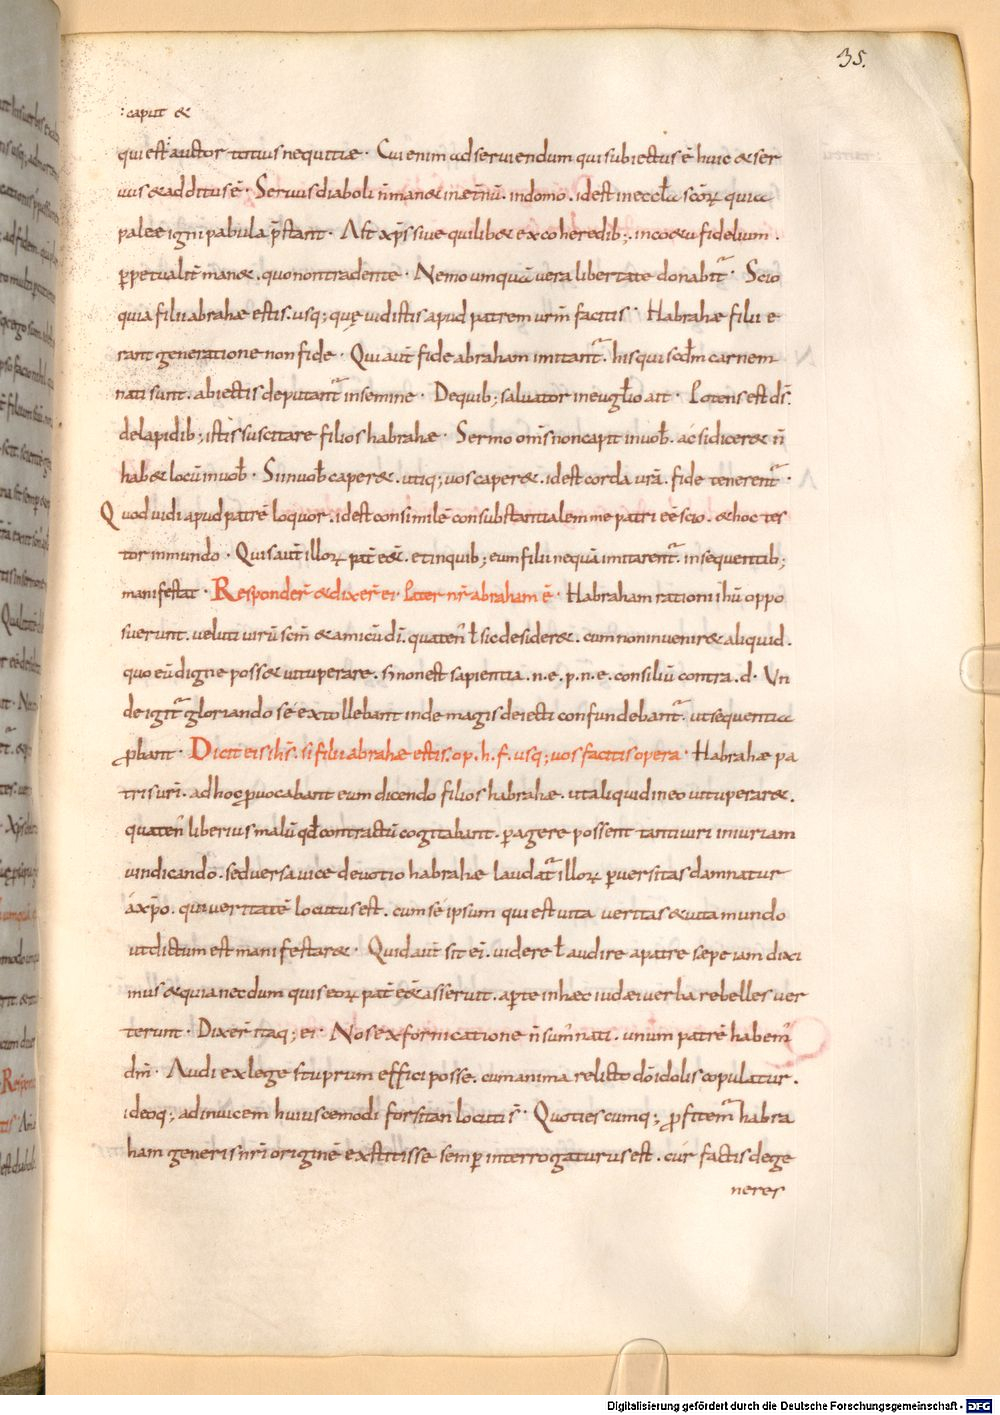 35.
: caput &
qui est auctor totius nequitiae · Cui enim ad seruiendum qui subiectus ē huic & ser
uus & additus ē · Seruus diaboli n̄ man& in aet̄nū · in domo . id est in eccła scōꝝ quia
paleae igni pabula p̄stant · Ast xp̄s siue quilib& ex coheredib; . in coetu fidelium .
ꝑpetualit̄ man& . quo non tradente · Nemo umquā uera libertate donabit᷑ · Scio
quia filii abrahae estis . usq; quę uidistis apud patrem urm̄ facitis · Habrahae filii e
rant generatione non fide · Qui aut̄ fide abraham imitant᷑ . his qui scd̄m carnem
nati sunt . abiectis deputant᷑ in semine · De quib; saluator in euḡlio ait · Potens est ds̄ .
de lapidib; istis suscitare filios habrahae · Sermo om̄s non capit in uob̄ . ac si dicer& n̄
hab& locū in uob̄ · Si in uob̄ caper& . utiq; uos caper& . id est corda urā . fide tenerent᷑ ·
Quod uidi apud patrē loquor . id est consimilē consubstantialem me patri eē scio . & hoc tes
tor in mundo · Quis aut̄ illoꝝ pat̄ eēt . et in quib; eum filii nequā imitarent᷑ . in sequentib;
manifestat · Responder̄ & dixer̄ ei · Pater nr̄ abraham ē · Habraham rationi ihū oppo
suerunt . ueluti uirū scm̄ & amicū dī . quaten̄ ł sic desider& . cum non inuenir& aliquid .
quo eū digne poss& uituperare . s; non est sapientia . n . e . p . n . e . consiliū contra . d · Un
de igit᷑ gloriando sé extollebant inde magis deiecti confundebant᷑ . ut sequentia
ꝓbant · Dicit eis ihs̄ . si filii abrahae estis . op . h . f . usq; uos facitis opera · Habrahae pa
tris uri . ad hoc ꝓuocabant eum dicendo filios habrahae . ut aliquid in eo uituperar& .
quaten̄ liberius malū qd̄ contra ctū cogitabant . ꝑagere possent tanti uiri iniuriam
uindicando . sed uersa uice deuotio habrahae laudat᷑ illoꝝ ꝑuersitas damnatur
á xp̄o . qui ueritatē locutus est . cum se ipsum qui est uita ueritas & uita mundo
ut dictum est manifestar& · Quid aut̄ sit eī . uidere ł audire a patre saepe iam dixi
mus & quia necdum quis eoꝝ pat̄ eēt asseruit . aperte in haec iudaei uerba rebelles uer
terunt · Dixer̄ itaq; ei · Nos ex fornicatione n̄ sum᷒ nati . unum patrē habem᷒
dm̄ · Audi ex lege stuprum effici posse . cum anima relicto dō idolis copulatur .
ideoq; ad inuicem huiuscemodi forsitan locuti s̄ · Quotiescumq; ꝓfitem᷑ habra
ham generis nr̄i originē exstitisse semꝑ interrogaturus est . cur factis dege
neres
Digitalisierung gefördert durch die Deutsche Forschungsgemeinschaft - DFG